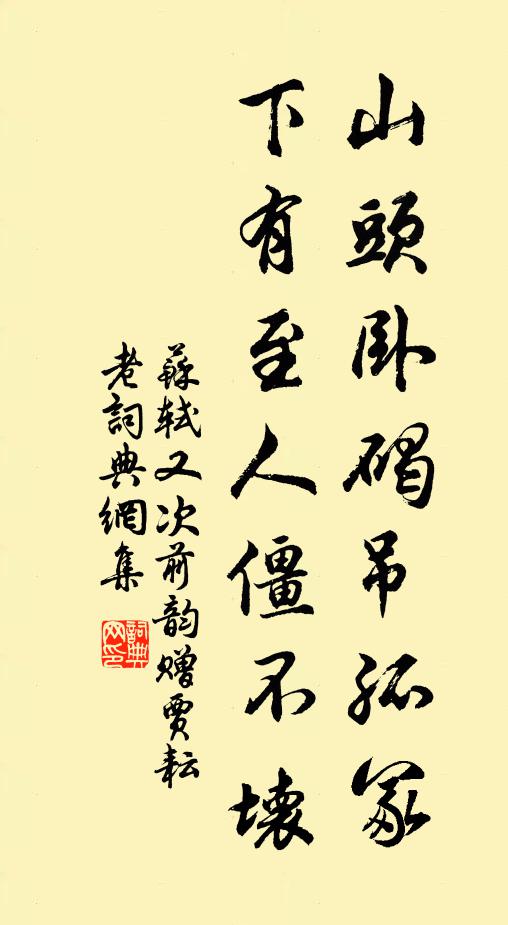 山頭卧碣吊孤冢
下有至人僵不壞
蘇軾又次前韵贈賈耘
老詞典網集
詞典网印